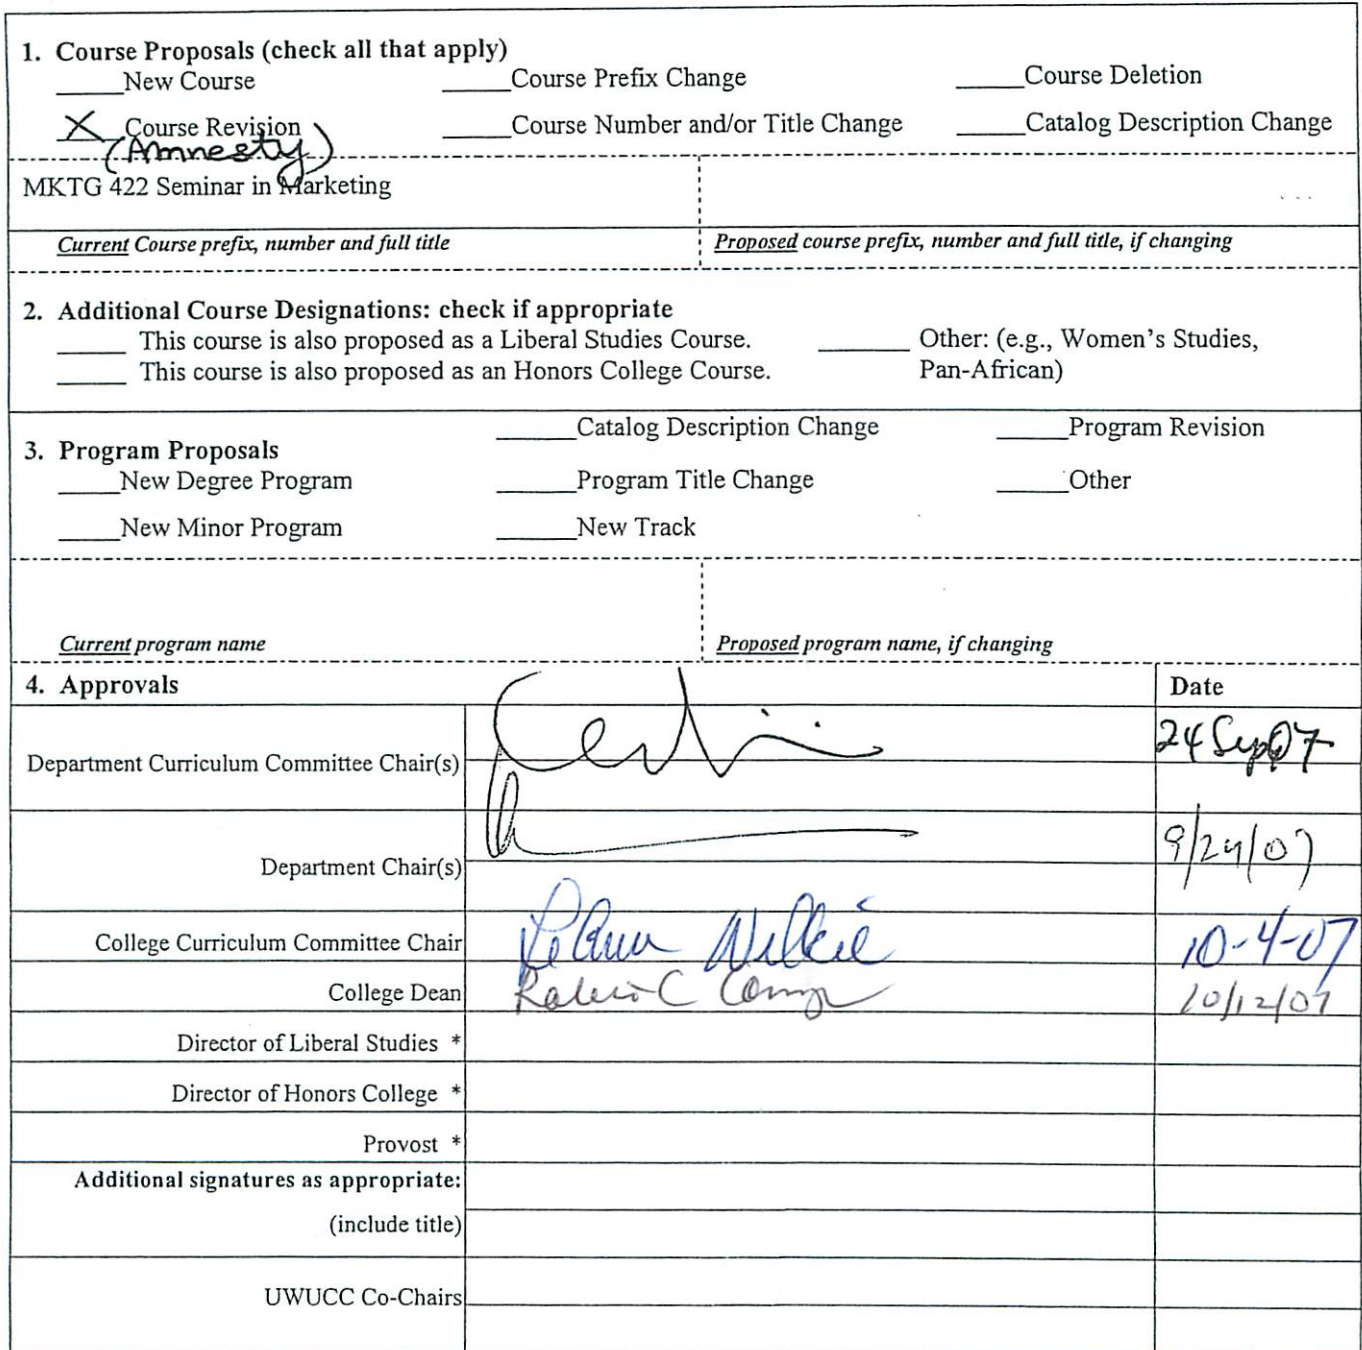 1. Course Proposals (check all that apply)
_____New Course _____Course Prefix Change _____Course Deletion
X Course Revision _____Course Number and/or Title Change _____Catalog Description Change
(Amnesty)
MKTG 422 Seminar in Marketing
Current Course prefix, number and full title Proposed course prefix, number and full title, if changing
2. Additional Course Designations: check if appropriate
_____ This course is also proposed as a Liberal Studies Course. _____ Other: (e.g., Women's Studies,
_____ This course is also proposed as an Honors College Course. Pan-African)
_____Catalog Description Change _____Program Revision
3. Program Proposals
_____New Degree Program _____Program Title Change _____Other
_____New Minor Program _____New Track
Current program name Proposed program name, if changing
4. Approvals Date
Department Curriculum Committee Chair(s) 24 Sep07
Department Chair(s) 9/24/07
College Curriculum Committee Chair LeAnn Wilkie 10-4-07
College Dean Robert C Camp 10/12/07
Director of Liberal Studies *
Director of Honors College *
Provost *
Additional signatures as appropriate:
(include title)
UWUCC Co-Chairs